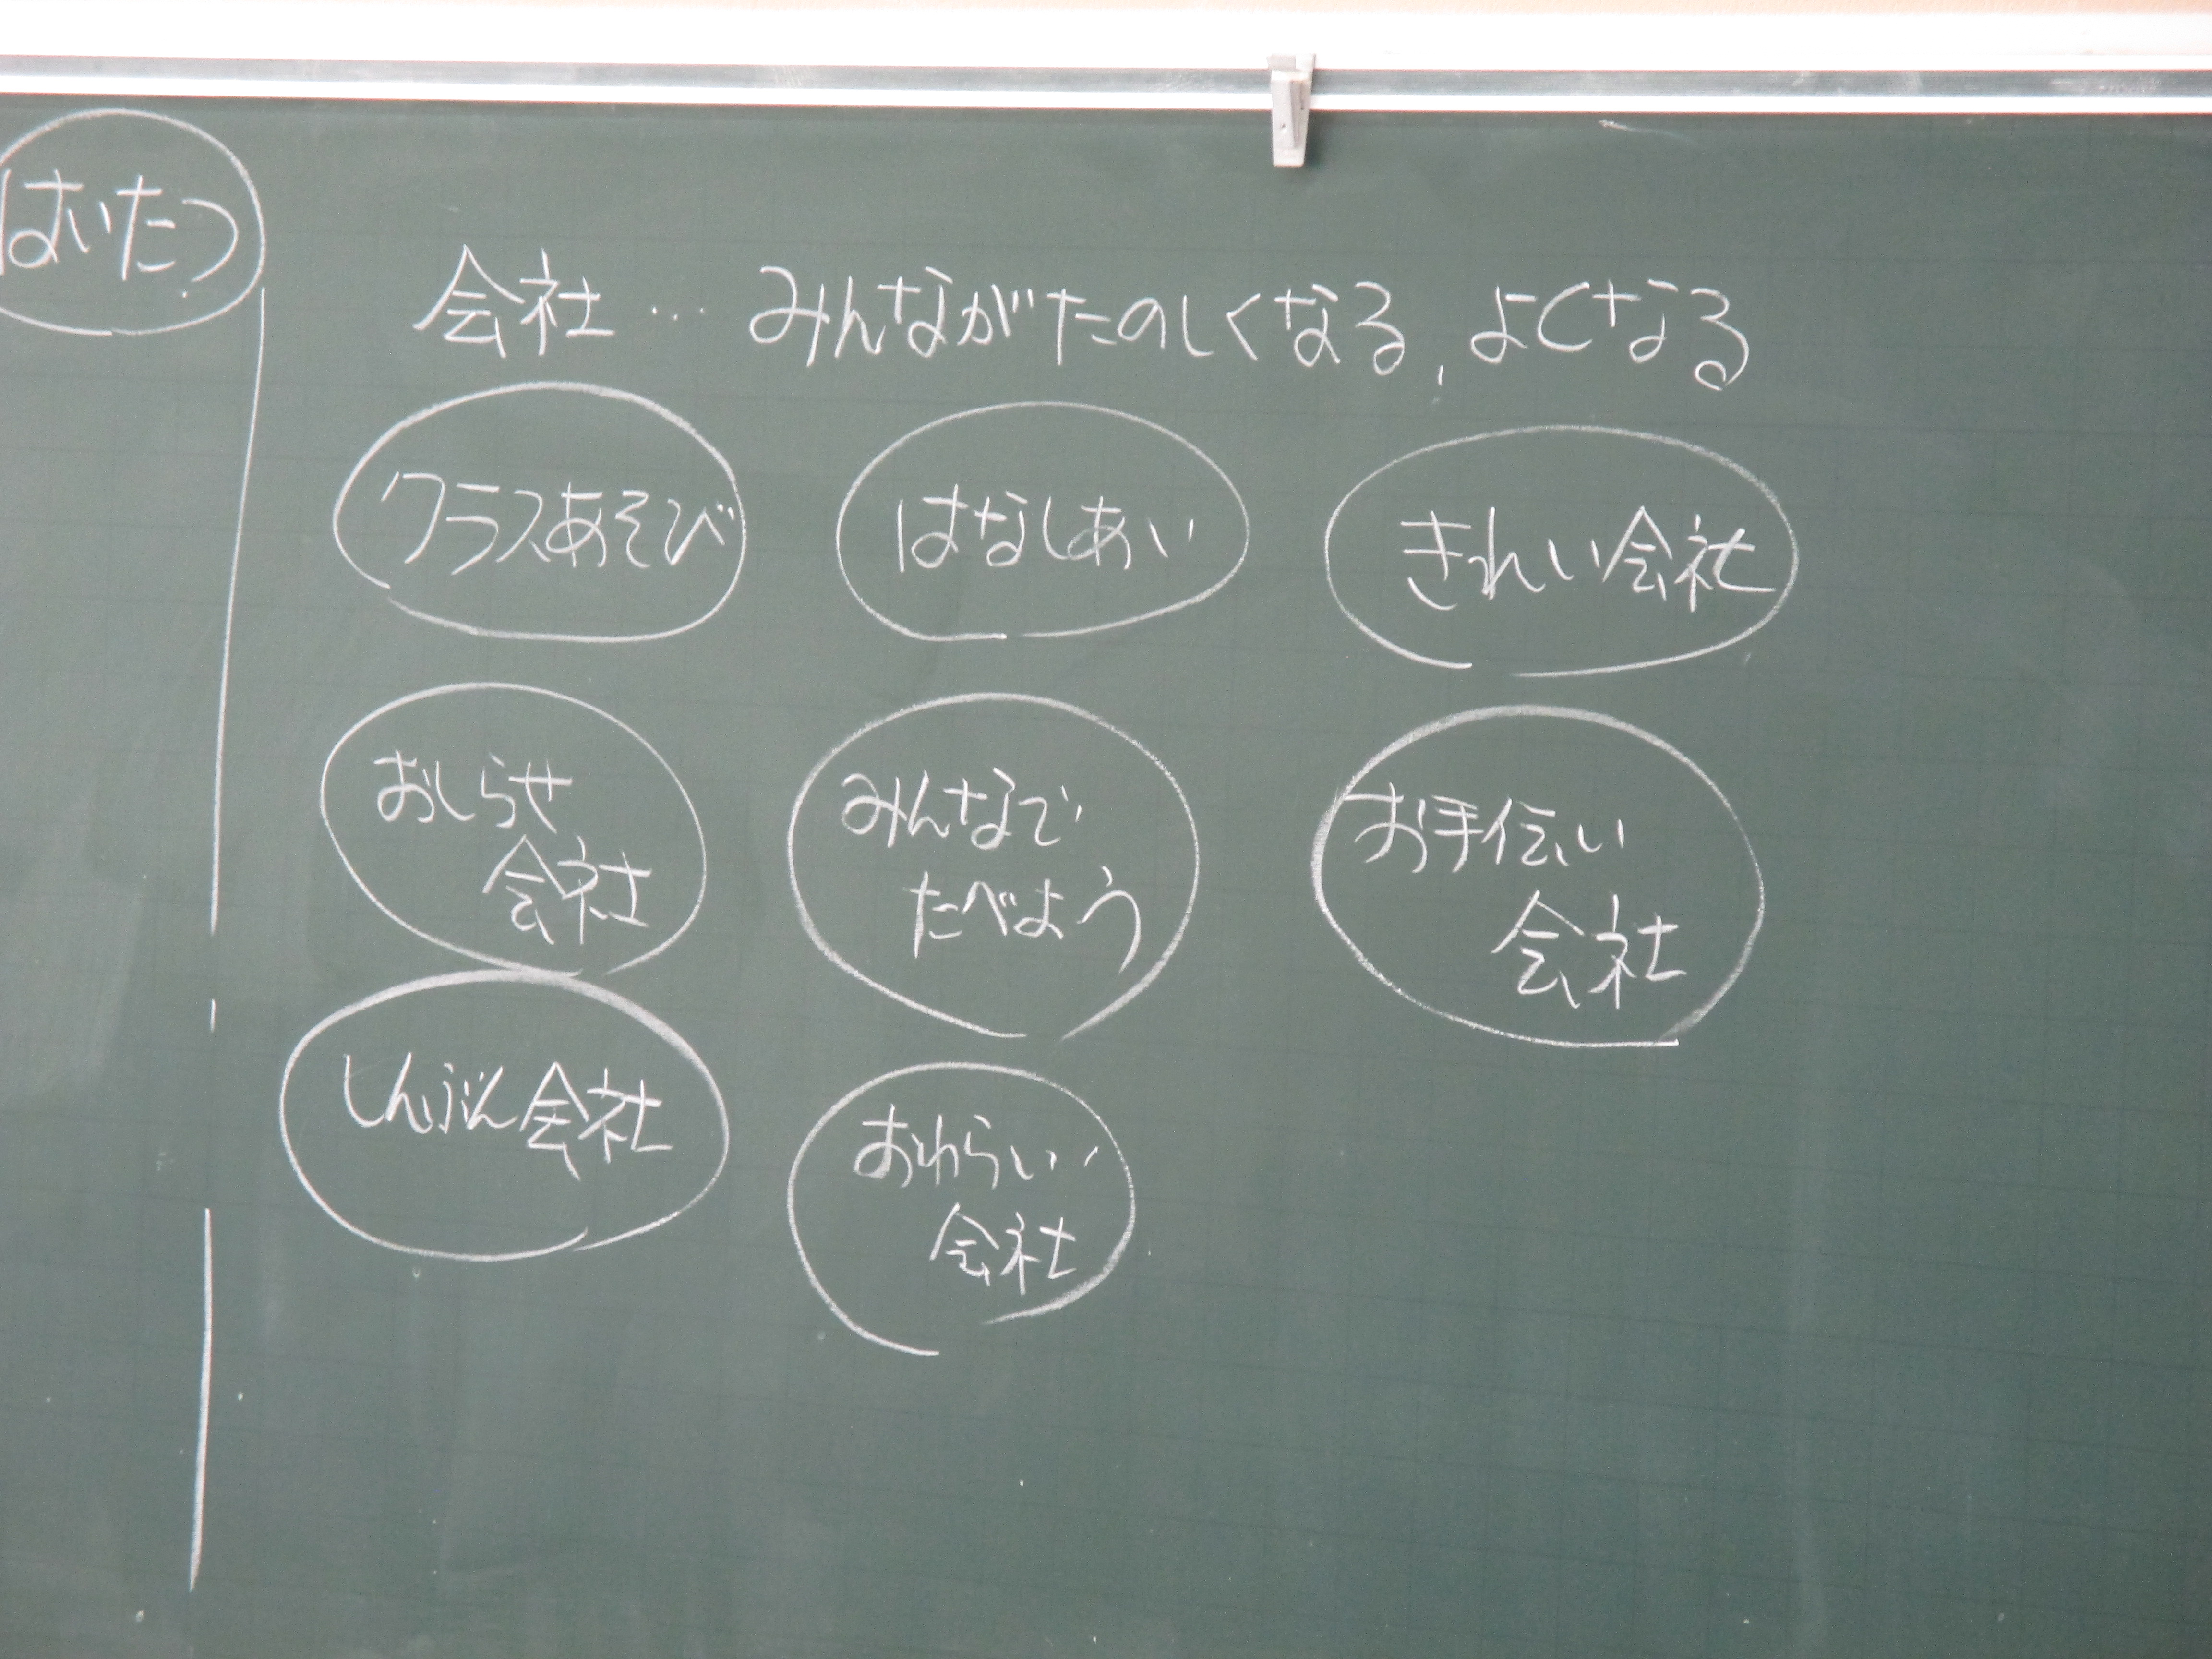 はいたつ
会社…みんながたのしくなる,よくなる
クラスあそび
はなしあい
きれい会社
おしらせ
会社
みんなで
たべよう
お手伝い
会社
しんぶん会社
おわらい
会社